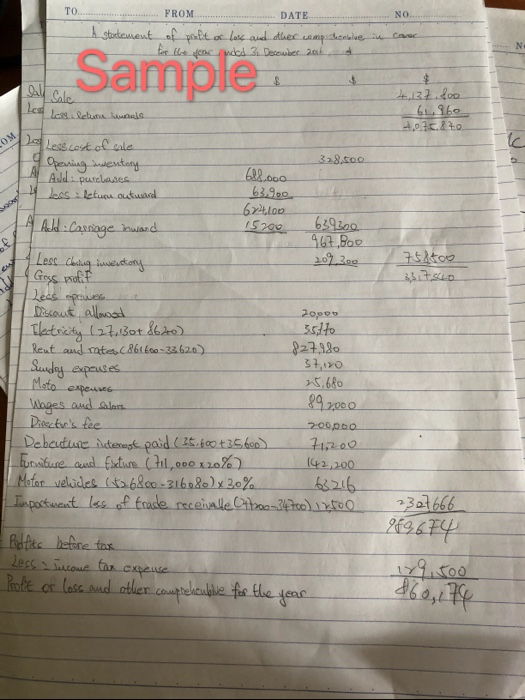 TO FROM DATE NO.
A statement of profit or loss and other comprehensive income
for the year ended 31 December 201
Sample
$ $ $
Sale 4,137,800
Less: Return inwards 61,960
4,075,840
Less cost of sale
Opening inventory 328,500
Add: purchases 688,000
Less: Return outward 63,900
624,100
Add: Carriage inward 15200 639300
967,800
Less closing inventory 209,300 758500
Gross profit
Less expenses
Discount allowed 20,000
Electricity (27,130+8640)
Rent and rates (861600-33620) 827,980
Sunday expenses 37,120
Moto expenses 25,680
Wages and salary 892000
Director's fee 200,000
Debenture interest paid (35,600+35,600) 71,200
Furniture and fixture (711,000x20%) 142,200
Motor vehicles (526800-316080)x30% 63216
Impairment loss of trade receivable (47200-34700) 12500 2327666
989674
Profits before tax
Less: Income tax expense 129,500
Profit or loss and other comprehensive for the year 860,174